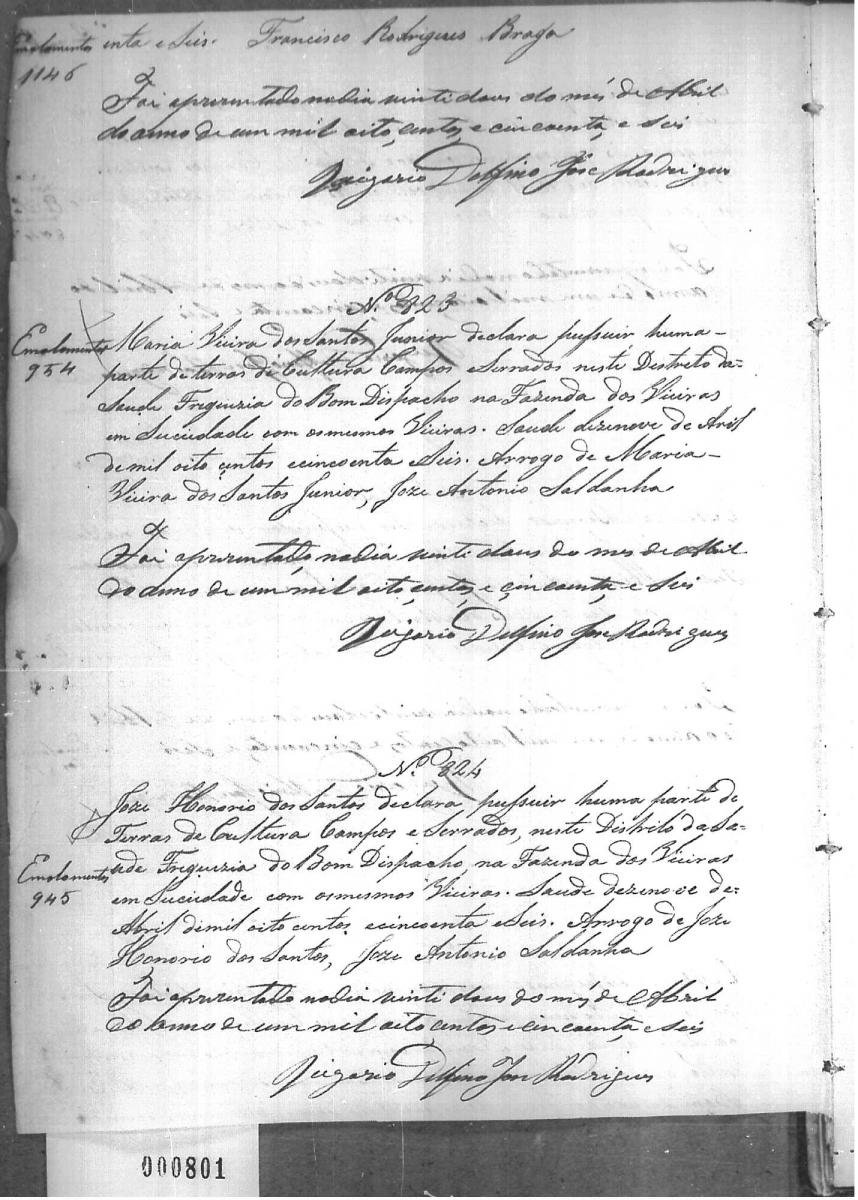 Emolumentos enta e Seis. Francisco Rodrigues Braga
1146
Foi apresentado no dia vinte dous do mês de Abril
do anno de um mil oito centos e cincoenta e seis
Vigario Delfino José Rodrigues
N.º 823
Maria Vieira dos Santos Junior declara pussuir huma
Emolumentos
954
parte de terras de Cultura Campos e Serrados neste Distreto da
Saude Freguezia do Bom Dispacho na Fazenda dos Vieiras
em Suciedade com os mesmos Vieiras. Saude dezenove de Aril
de mil oito centos ecincoenta e Seis. Arrogo de Maria
Vieira dos Santos Junior, Joze Antonio Saldanha
Foi apresentado no dia vinte dous do mes de Abril
do anno de um mil oito centos e cincoenta e seis
Vigario Delfino Jose Rodrigues
N.º 824
Joze Honorio dos Santos declara pussuir huma parte de
Terras de Cultura Campos e Serrados, neste Distrito da Sa-
Emolumentos
945
ude Freguezia do Bom Dispacho, na Fazenda dos Vieiras
em Suciedade com os mesmos Vieiras. Saude dezenove de
Abril de mil oito centos ecincoenta e Seis. Arrogo de Joze
Honorio dos Santos, Joze Antonio Saldanha
Foi apresentado no dia vinte dous do mês de Abril
do anno de um mil oito centos e cincoenta e seis
Vigario Delfino Jose Rodrigues
000801